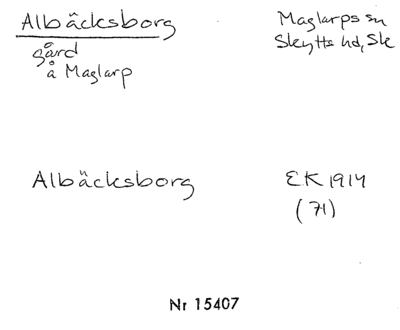 Albäcksborg
gård
å Maglarp
Maglarps sn
Skytts hd, Sk
Albäcksborg
EK 1914
(71)
Nr 15407